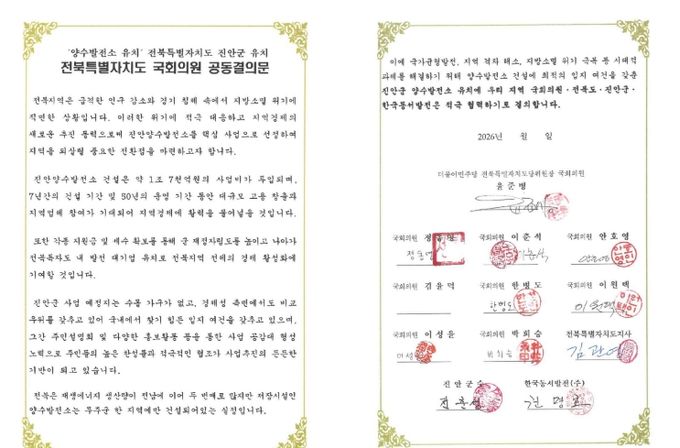 '양수발전소 유치' 전북특별자치도 진안군 유치
전북특별자치도 국회의원 공동결의문
전북지역은 급격한 인구 감소와 경기 침체 속에서 지방소멸 위기에
직면한 상황입니다. 이러한 위기에 적극 대응하고 지역경제의
새로운 추진 동력으로써 진안양수발전소를 핵심 사업으로 선정하여
지역을 되살릴 중요한 전환점을 마련하고자 합니다.
진안양수발전소 건설은 약 1조 7천억원의 사업비가 투입되며,
7년간의 건설 기간 및 50년의 운영 기간 동안 대규모 고용 창출과
지역업체 참여가 기대되어 지역경제에 활력을 불어넣을 것입니다.
또한 각종 지원금 및 세수 확보를 통해 군 재정자립도를 높이고 나아가
전북특자도 내 발전 대기업 유치로 전북지역 전체의 경제 활성화에
기여할 것입니다.
진안군 사업 예정지는 수몰 가구가 없고, 경제성 측면에서도 비교
우위를 갖추고 있어 국내에서 찾기 힘든 입지 여건을 갖추고 있으며,
그간 주민설명회 및 다양한 홍보활동 등을 통한 사업 공감대 형성
노력으로 주민들의 높은 찬성률과 적극적인 협조가 사업추진의 든든한
기반이 되고 있습니다.
전북은 재생에너지 생산량이 전남에 이어 두 번째로 많지만 저장시설인
양수발전소는 무주군 한 지역에만 건설되어있는 실정입니다.
이에 국가균형발전, 지역 격차 해소, 지방소멸 위기 극복 등 시대적
과제를 해결하기 위해 양수발전소 건설에 최적의 입지 여건을 갖춘
진안군 양수발전소 유치에 우리 지역 국회의원·전북도·진안군·
한국동서발전은 적극 협력하기로 결의합니다.
2026년 월 일
더불어민주당 전북특별자치도당위원장 국회의원
윤준병
국회의원 정동영 국회의원 이춘석 국회의원 안호영
정동영
국회의원 김윤덕 국회의원 한병도 국회의원 이원택
한병도 이원택
국회의원 이성윤 국회의원 박희승 전북특별자치도지사
김관영
진안군수 한국동서발전(주)
전춘성 권명호